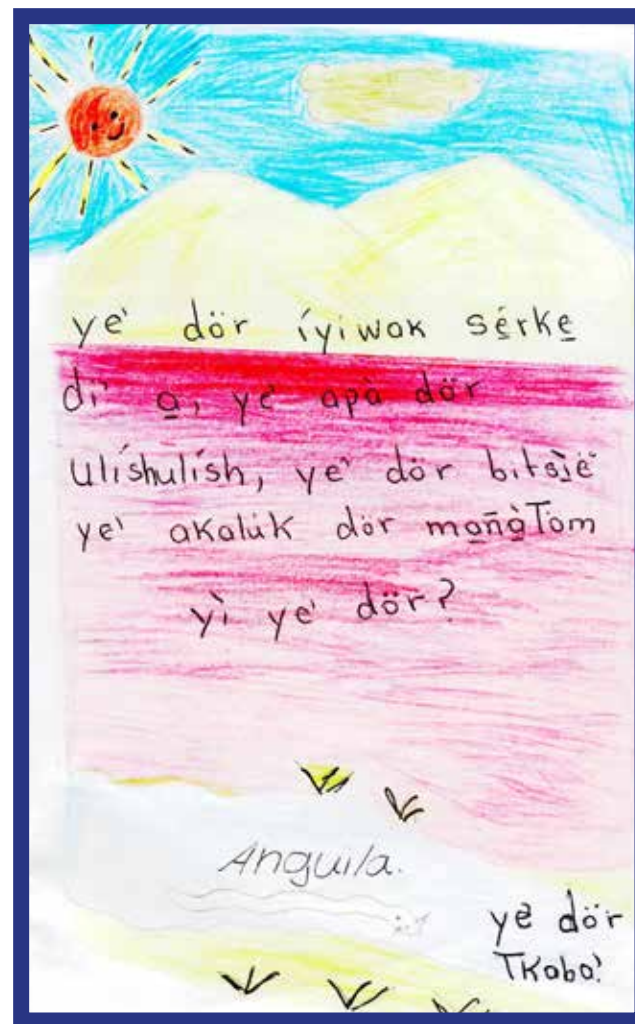 ye' dör íyiwak sé̱rke̱
di' a̱, ye' apà dör
Ulíshulísh, ye' dör bitsì̱ë̀
ye' akalúk dör ma̱ñà̱Töm
yì ye' dör?
Anguila.
ye' dör
Tkabo!